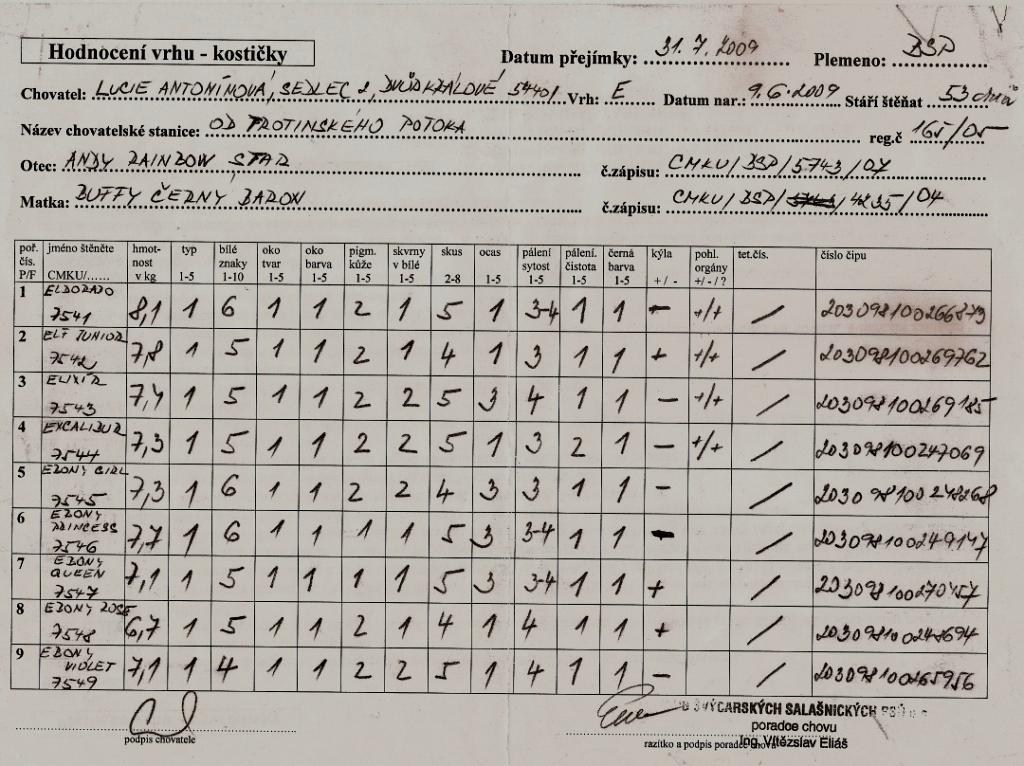 Hodnocení vrhu - kostičky
Datum přejímky: 31.7.2009 Plemeno: BSP
Chovatel: LUCIE ANTONÍNOVÁ, SEDLEC 2, DVŮR KRÁLOVÉ 54401 Vrh: E Datum nar.: 9.6.2009 Stáří štěňat 53 dnů
Název chovatelské stanice: OD TROTINSKÉHO POTOKA reg.č 165/05
Otec: ANDY RAINBOW STAR č.zápisu: CMKU/BSP/5743/07
Matka: BUFFY ČERNÝ BARON č.zápisu: CMKU/BSP/ 4235/04
poř. čís. P/F jméno štěněte CMKU/...... hmotnost v kg typ 1-5 bílé znaky 1-10 oko tvar 1-5 oko barva 1-5 pigm. kůže 1-5 skvrny v bílé 1-5 skus 2-8 ocas 1-5 pálení sytost 1-5 pálení. čistota 1-5 černá barva 1-5 kýla +/- pohl. orgány +/-/? tet.čís. číslo čipu
1 ELDORADO 7541 8,1 1 6 1 1 2 1 5 1 3-4 1 1 - +/+ / 203098100266873
2 ELF JUNIOR 7542 7,8 1 5 1 1 2 1 4 1 3 1 1 + +/+ / 203098100269762
3 ELIXÍR 7543 7,4 1 5 1 1 2 2 5 3 4 1 1 - +/+ / 203098100269185
4 EXCALIBUR 7544 7,3 1 5 1 1 2 2 5 1 3 2 1 - +/+ / 203098100247069
5 EBONY GIRL 7545 7,3 1 6 1 1 2 2 4 3 3 1 1 - / 203098100248268
6 EBONY PRINCESS 7546 7,7 1 6 1 1 1 1 5 3 3-4 1 1 - / 203098100249147
7 EBONY QUEEN 7547 7,1 1 5 1 1 1 1 5 3 3-4 1 1 + / 203098100270457
8 EBONY ROSE 7548 6,7 1 5 1 1 2 1 4 1 4 1 1 + / 203098100248694
9 EBONY VIOLET 7549 7,1 1 4 1 1 2 2 5 1 4 1 1 - / 203098100265956
ŠVÝCARSKÝCH SALAŠNICKÝCH PSŮ
poradce chovu
podpis chovatele razítko a podpis poradce chovu
Ing. Vítězslav Eliáš